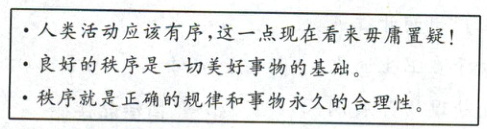 ·人类活动应该有序,这一点现在看来毋庸置疑!
·良好的秩序是一切美好事物的基础。
·秩序就是正确的规律和事物永久的合理性。